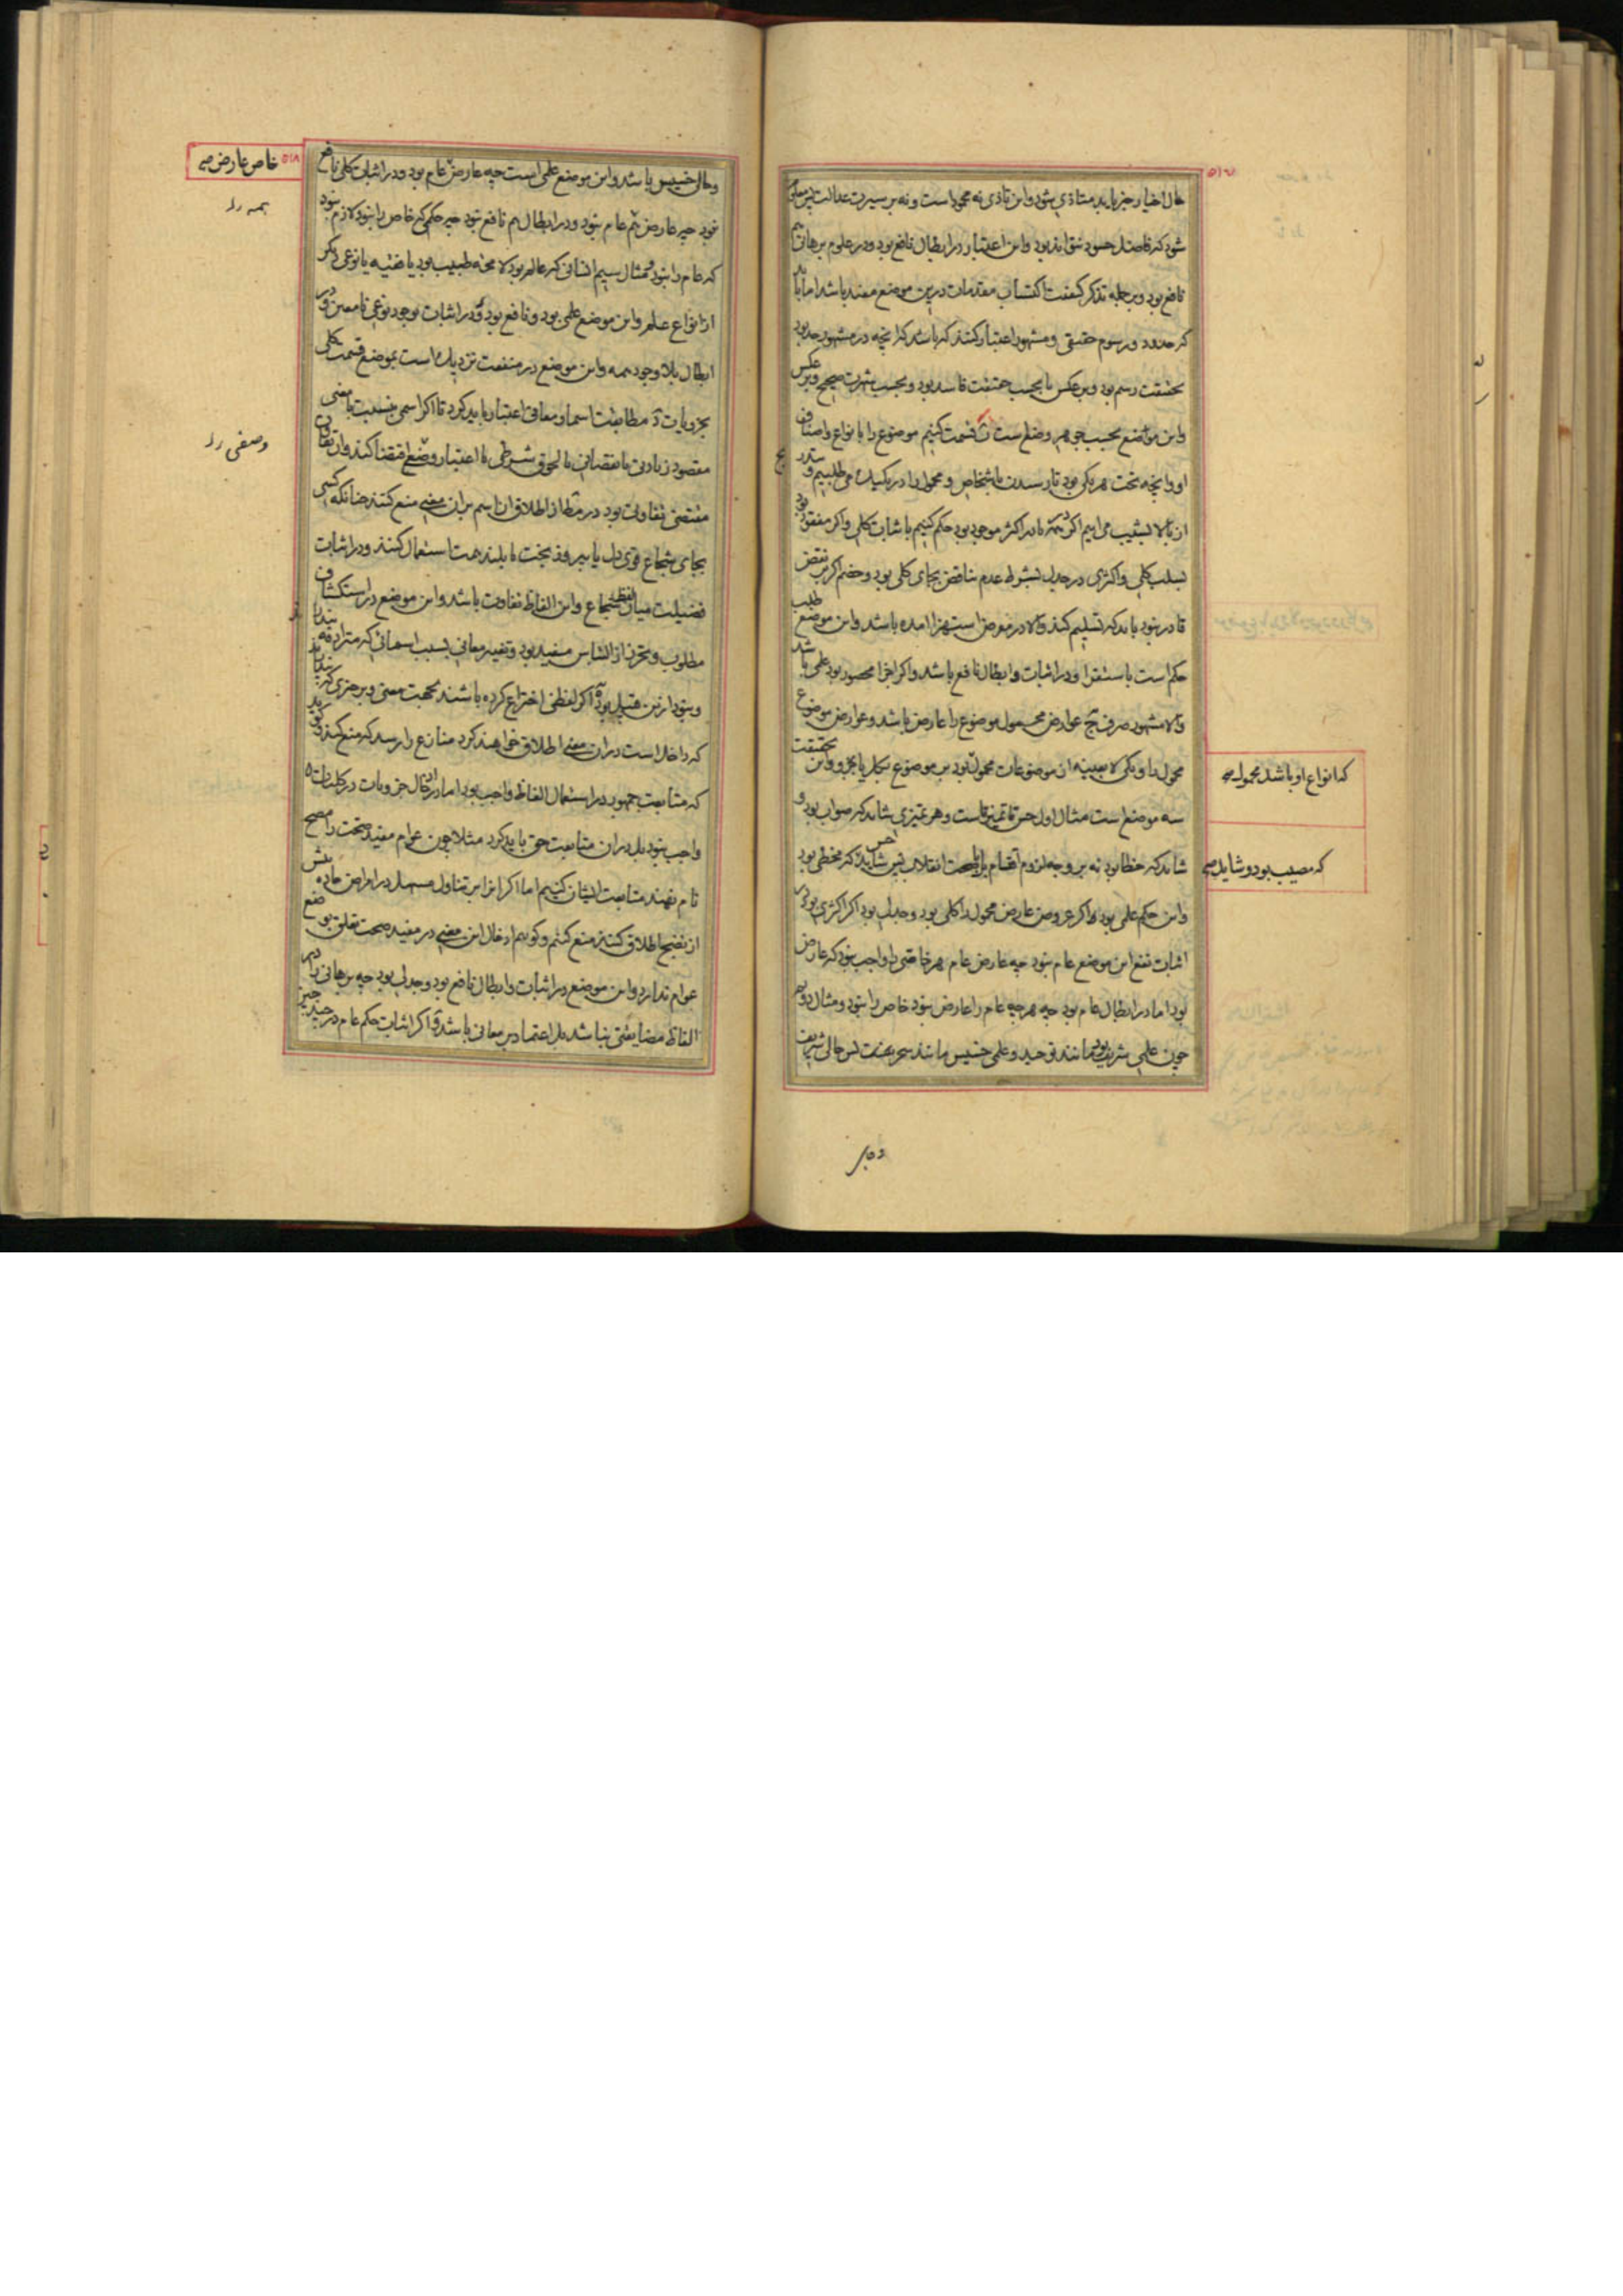 حال اخیار جز باید متاذی شود و این تاذی نه محمود است و نه بر سیرت عدالت پس معلوم
شود که فاضل حسود نتواند بود و این اعتبار در ابطال نافع بود و در علوم برهانی هم
نافع بود و بر جمله تذکر کیفیت اکتساب مقدمات درین موضع مفید باشد اما باید
که حدود و رسوم حقیقی و مشهور اعتبار کنند که باشد که آنچه در مشهور حد بود
بحقیقت رسم بود و برعکس یا بحسب حقیقت فاسد بود و بحسب شهرت صحیح و برعکس
و این مواضع بحسب جوهر وضع است قسمت کنیم موضوع را بانواع و اصناف
او و آنچه تحت هر یکی بود تا رسیدن باشخاص و محمول را در یکیک می طلبیم و بتدریج
از بالا بشیب می آییم اگر در همه یا در اکثر موجود بود حکم کنیم باثبات کلی و اگر مفقود بود
بسلب کلی و اکثری در جدل بشرط عدم تناقض بجای کلی بود و خصم اگر بر نقض
قادر نبود باید که تسلیم کند و الا در معرض استهزا آمده باشد و این موضع طلب
حکم است باستقرا و در اثبات و ابطال نافع باشد و اگر اجزا محصور بود علمی باشد
و الا مشهور صرف عوارض محمول موضوع را عارض باشد و عوارض موضوع
محمول را و یکی لا بعینه از موضوعات محمول بود بر موضوع بکل یا بجزو و این بحقیقت
سه موضع است مثال اول حس تمییز است و هر تمییزی شاید که صواب بود و
شاید که خطا بود نه بر وجه لزوم اقسام بل بصحت انقلاب پس حس شاید که مخطی بود
و این حکم علمی بود و اگر عروض عارض محمول را کلی بود و جدلی بود اگر اکثری بود و در
اثبات نفع این موضع عام نبود چه عارض عام هر خاصی را واجب نبود که عارض
بود اما در ابطال عام بود چه هر چه عام را عارض نبود خاص را نبود و مثال دوم
چون علمی شریف بود مانند توحید و علمی خسیس مانند سحر بعضی پس حالی شریف
که انواع او باشد محمول صح
که مصیب بود و شاید صح
و حالی خسیس باشد و این موضع علمی است چه عارض عام بود و در اثبات کلی نافع
نبود چه عارض عام نبود و در ابطال هم نافع نبود چه حکمی که خاص را نبود لازم نبود
که عام را نبود و مثال سیم انسانی که عالم بود لا محاله طبیب بود یا فقیه یا نوعی دیگر
از انواع علم و این موضع علمی بود و نافع بود در اثبات بوجود نوعی نامعین و در
ابطال بلا وجود همه و این موضع در منفعت نزدیک است بموضع قسمت کلی
بجزویات مطابقت اسما و معانی اعتبار باید کرد تا اگر اسمی بنسبت با معنی
مقصود زیادتی یا نقصانی یا لحوق شرطی یا اعتبار وضع اقتضا کند و آن تفاوت
مقتضی تفاوت بود در مطلق از اطلاق آن اسم بران معنی منع کنند چنانکه کسی
بجای شجاع قوی دل یا پیروز بخت یا بلند همت استعمال کنند و در اثبات
فضیلت میان لفظ شجاع و این الفاظ تفاوت باشد و این موضع در استکشاف
مطلوب و تحرز از التباس مفید بود و تغییر معانی بسبب اسمائی که مترادف پندارند
و نبود ازین قبیل بود اگر لفظی اختراع کرده باشند بجهت معنی و بر چیزی که پندارند
که داخل است دران معنی اطلاق خواهند کرد منازع را رسد که منع کند و گوید
که متابعت جمهور در استعمال الفاظ واجب بود اما در ادخال جزویات در کلیات
واجب نبود بل دران متابعت حق باید کرد مثلا چون عوام مفید صحت را مصح
نام نهند متابعت ایشان کنیم اما اگر ایشان بتناول مسهل در امراض حاده پیش
از نضج اطلاق کنند منع کنیم و گوییم ادخال این معنی در مفید صحت تعلق بوضع
عوام ندارد و این موضع در اثبات و ابطال نافع بود و جدلی بود چه برهانی را در
الفاظ مضایقتی نباشد بل اعتماد بر معانی باشد و اگر اثبات حکم عام در چند چیز
خاص عارض صح
همه را
وصفی را